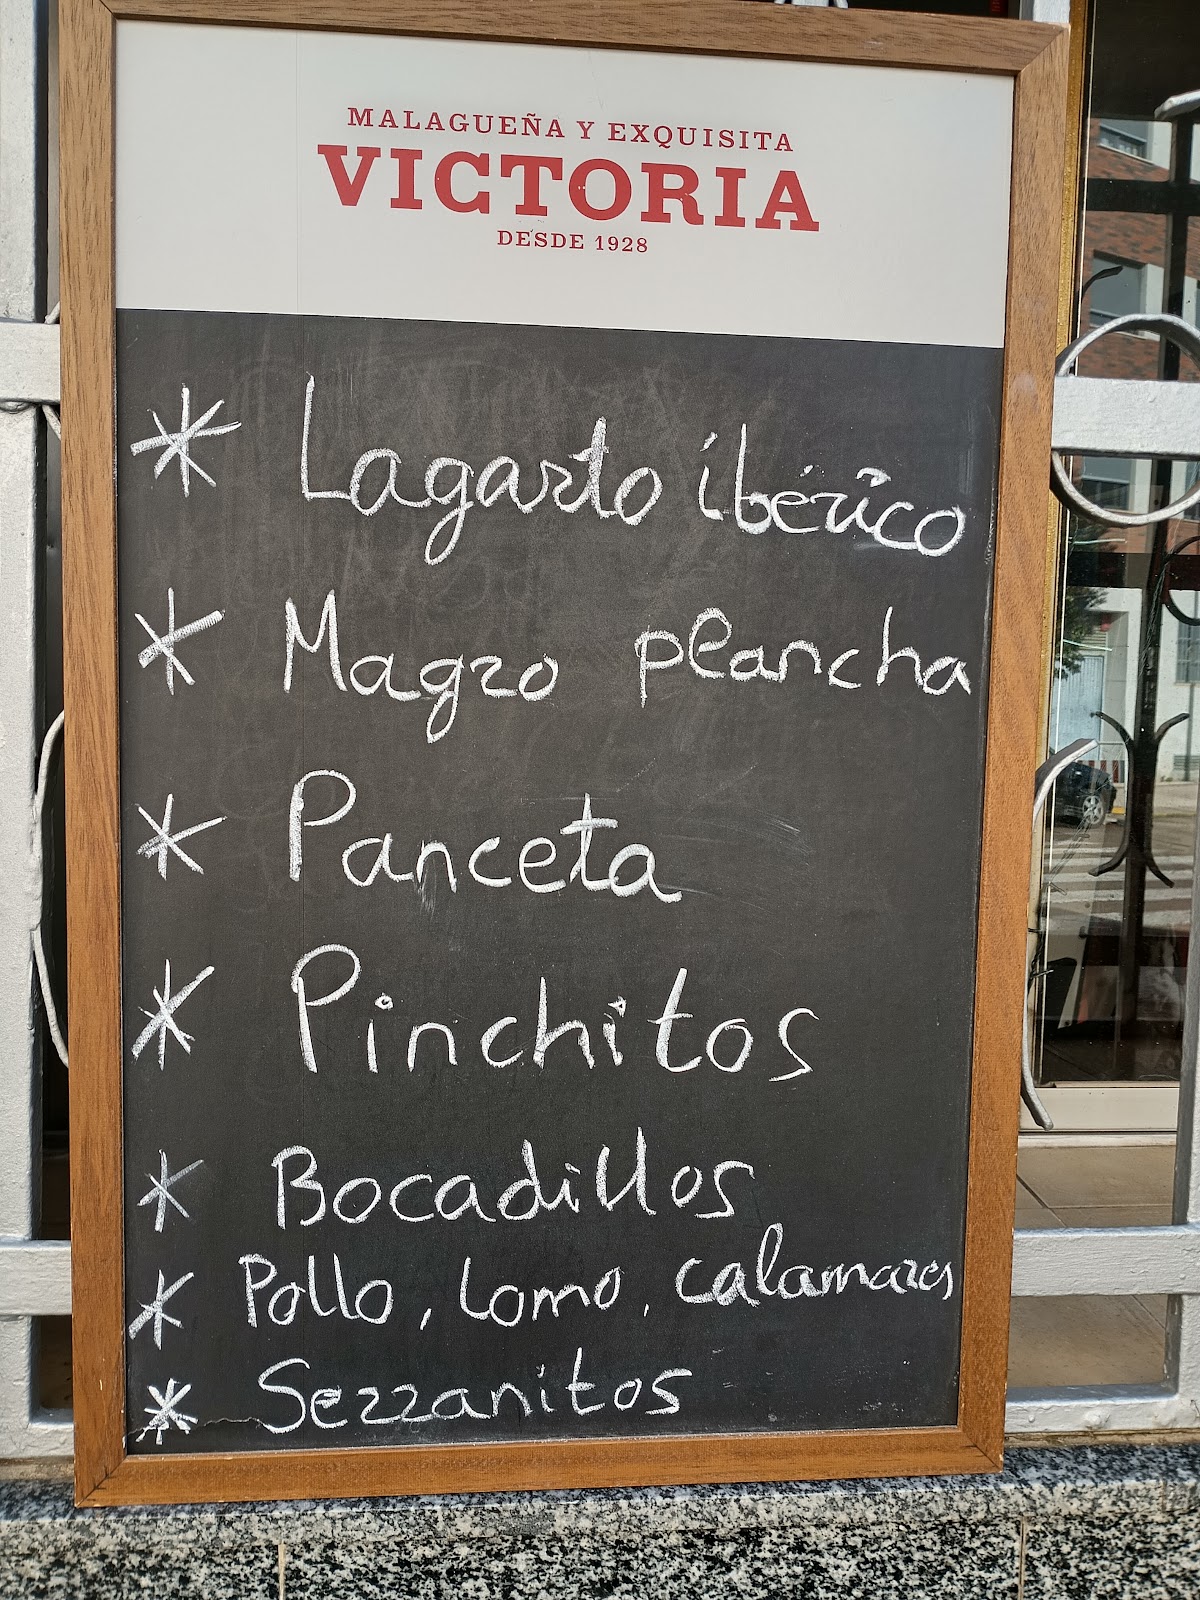 MALAGUEÑA Y EXQUISITA
VICTORIA
DESDE 1928
* Lagarto ibérico
* Magro plancha
* Panceta
* Pinchitos
* Bocadillos
* Pollo, lomo, calamares
* Serranitos